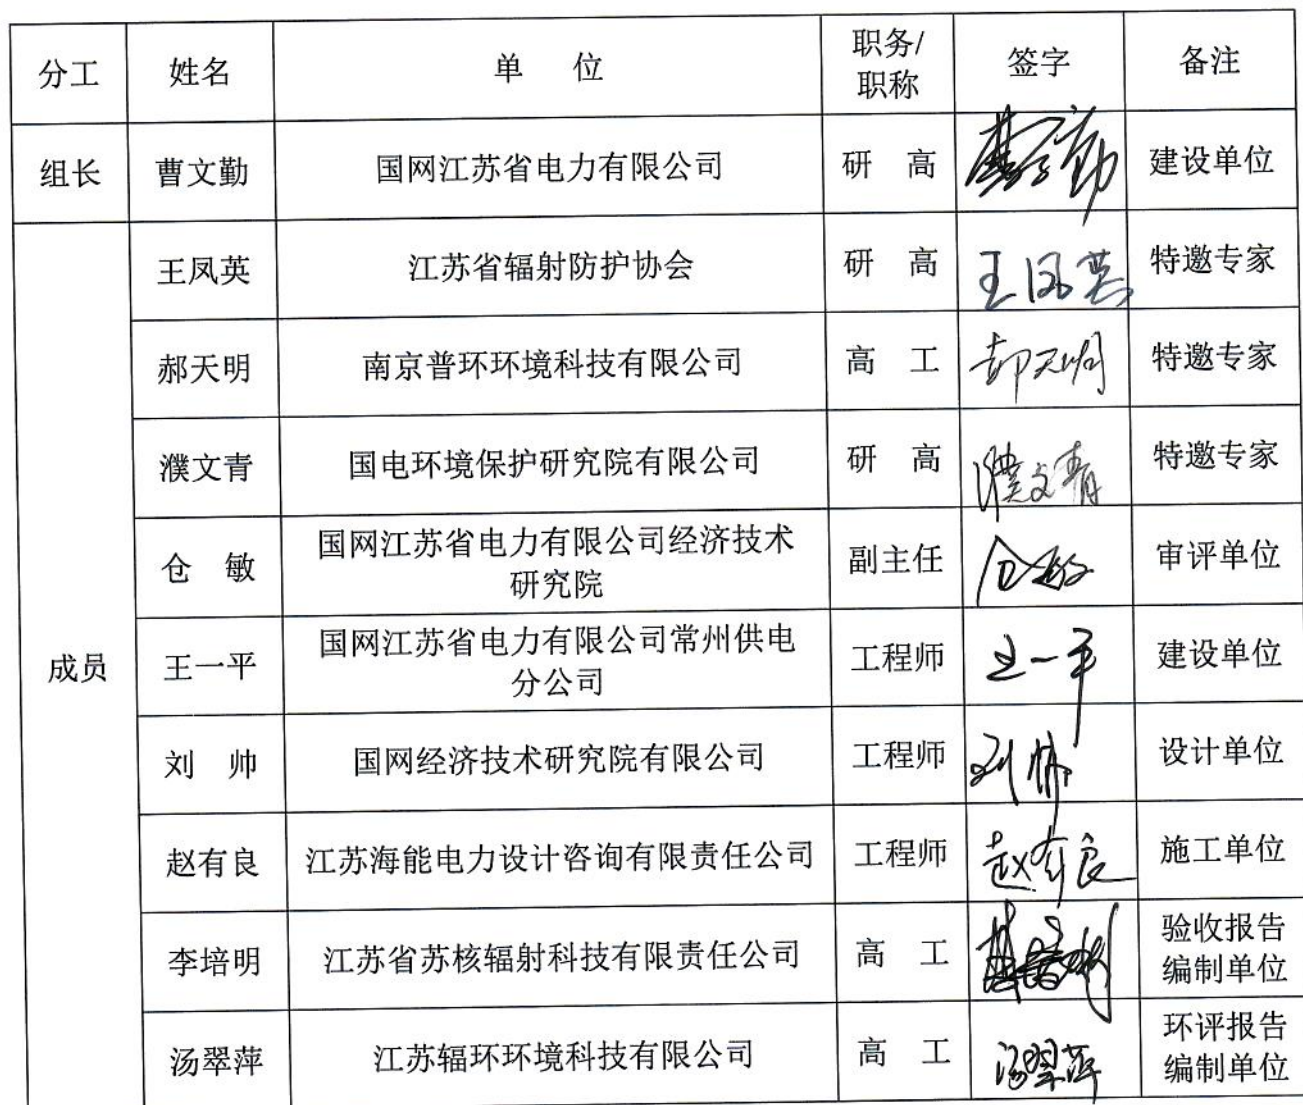 分工 姓名 单 位 职务/职称 签字 备注
组长 曹文勤 国网江苏省电力有限公司 研 高 曹文勤 建设单位
成员
王凤英 江苏省辐射防护协会 研 高 王凤英 特邀专家
郝天明 南京普环环境科技有限公司 高 工 郝天明 特邀专家
濮文青 国电环境保护研究院有限公司 研 高 濮文青 特邀专家
仓 敏 国网江苏省电力有限公司经济技术研究院 副主任 仓敏 审评单位
王一平 国网江苏省电力有限公司常州供电分公司 工程师 王一平 建设单位
刘 帅 国网经济技术研究院有限公司 工程师 刘帅 设计单位
赵有良 江苏海能电力设计咨询有限责任公司 工程师 赵有良 施工单位
李培明 江苏省苏核辐射科技有限责任公司 高 工 验收报告编制单位
汤翠萍 江苏辐环环境科技有限公司 高 工 汤翠萍 环评报告编制单位